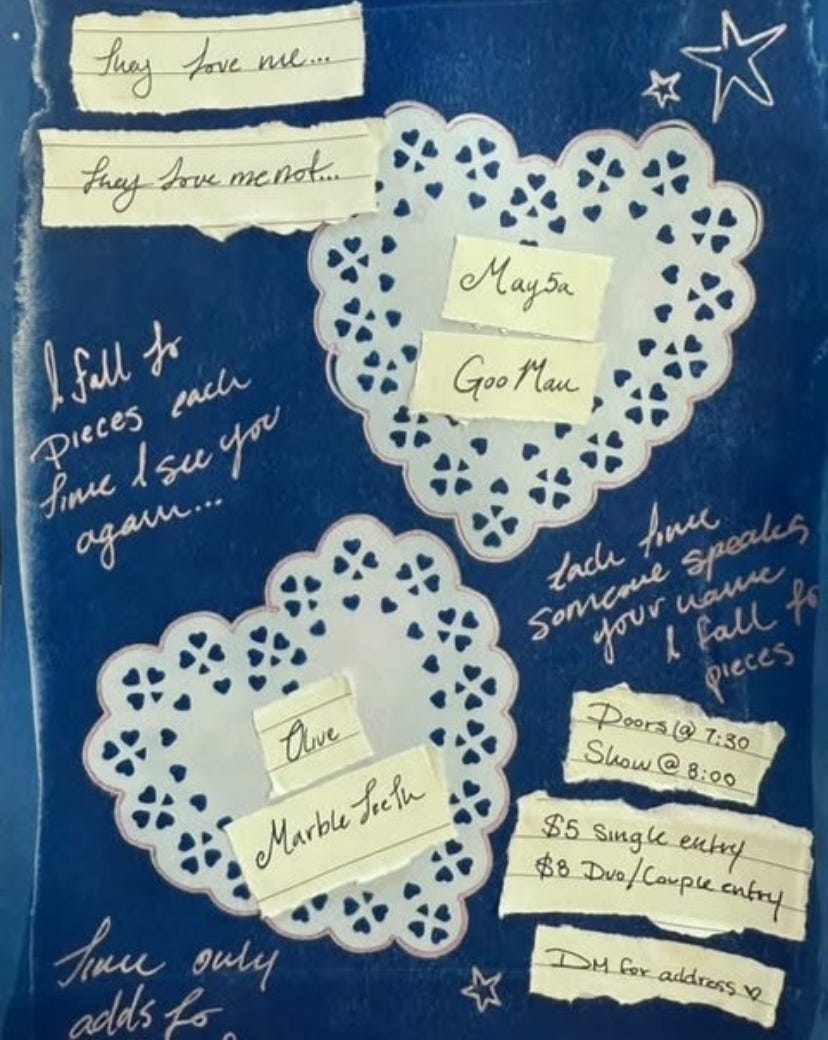 They love me...
They love me not...
May5a
Goo Man
I fall to
pieces each
time I see you
again...
Each time
someone speaks
your name
I fall to
pieces
Olive
Marble Teeth
Doors @ 7:30
Show @ 8:00
$5 Single entry
$8 Duo/Couple entry
DM for address ♡
Time only
adds to